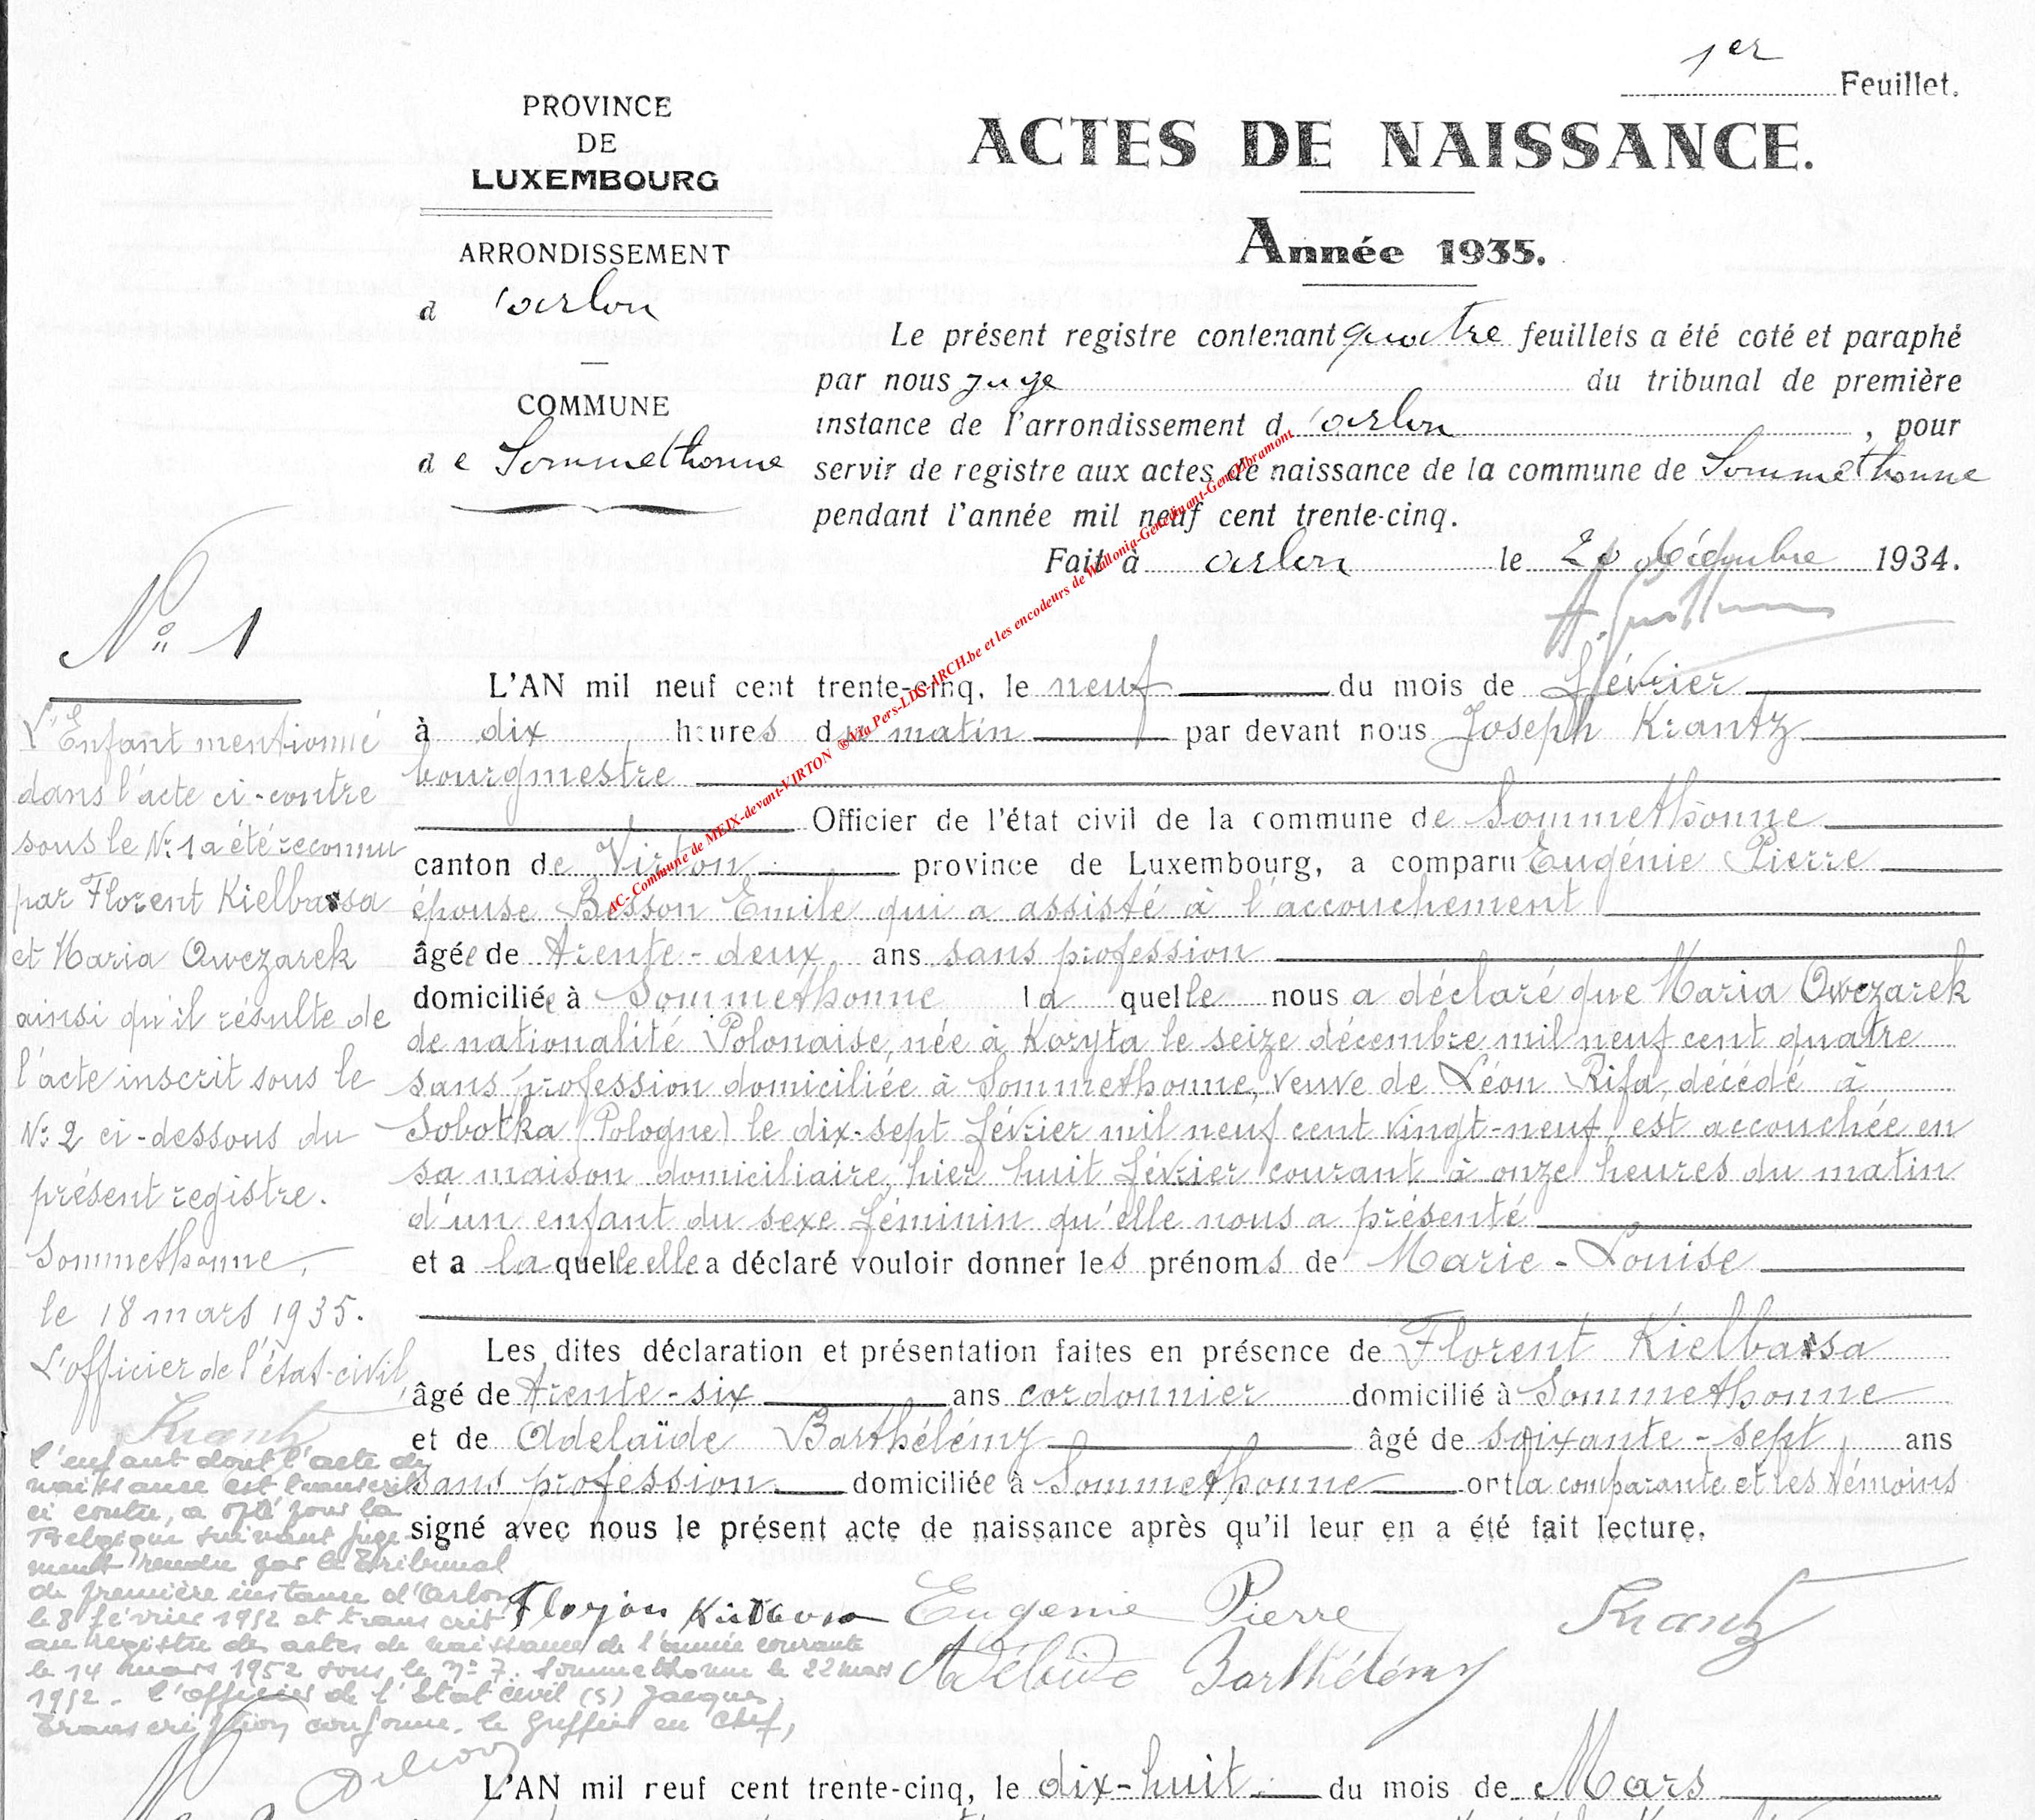 1er Feuillet.
PROVINCE
DE
LUXEMBOURG
ARRONDISSEMENT
d'arlon
COMMUNE
de Sommethonne
ACTES DE NAISSANCE.
Année 1935.
Le présent registre contenant quatre feuillets a été coté et paraphé
par nous juge du tribunal de première
instance de l'arrondissement d'arlon, pour
servir de registre aux actes de naissance de la commune de Sommethonne
pendant l'année mil neuf cent trente-cinq.
Fait à arlon le 20 décembre 1934.
AC- Commune de MEIX-devant-VIRTON ®Via Pers-LDS-ARCH.be et les encodeurs de Wallonia-Genedinant-GeneLibramont
No 1
L'Enfant mentionné
dans l'acte ci-contre
sous le No 1 a été reconnu
par Florent Kielbassa
et Maria Owczarek
ainsi qu'il résulte de
l'acte inscrit sous le
No 2 ci-dessous du
présent registre.
Sommethonne,
le 18 mars 1935.
L'officier de l'état-civil,
Krantz
l'enfant dont l'acte de
naissance est transcrit
ci contre, a opté pour la
Belgique suivant juge
ment rendu par le Tribunal
de première instance d'Arlon
le 8 février 1952 et transcrit
au registre des actes de naissance de l'année courante
le 14 mars 1952 sous le No 7. Sommethonne le 22 mars
1952. l'officier de l'Etat civil (s) Jacques.
Transcription conforme. le Greffier en Chef,
L'AN mil neuf cent trente-cinq, le neuf du mois de février
à dix heures du matin par devant nous Joseph Krantz
bourgmestre
Officier de l'état civil de la commune de Sommethonne
canton de Virton province de Luxembourg, a comparu Eugénie Pierre
épouse Besson Emile qui a assisté à l'accouchement
âgée de trente-deux ans sans profession
domiciliée à Sommethonne laquelle nous a déclaré que Maria Owczarek
de nationalité Polonaise, née à Koryta le seize décembre mil neuf cent quatre
sans profession domiciliée à Sommethonne, veuve de Léon Rifa, décédé à
Sobotka (Pologne) le dix-sept février mil neuf cent vingt-neuf, est accouchée en
sa maison domiciliaire, hier huit février courant à onze heures du matin
d'un enfant du sexe féminin qu'elle nous a présenté
et a laquelle elle a déclaré vouloir donner les prénoms de Marie-Louise
Les dites déclaration et présentation faites en présence de Florent Kielbassa
âgé de trente-six ans cordonnier domicilié à Sommethonne
et de Adelaïde Barthélémy âgé de soixante-sept ans
sans profession domiciliée à Sommethonne ont la comparante et les témoins
signé avec nous le présent acte de naissance après qu'il leur en a été fait lecture.
Florjan Eugénie Pierre Krantz
Adélaïde Barthélémy
L'AN mil neuf cent trente-cinq, le dix-huit du mois de Mars